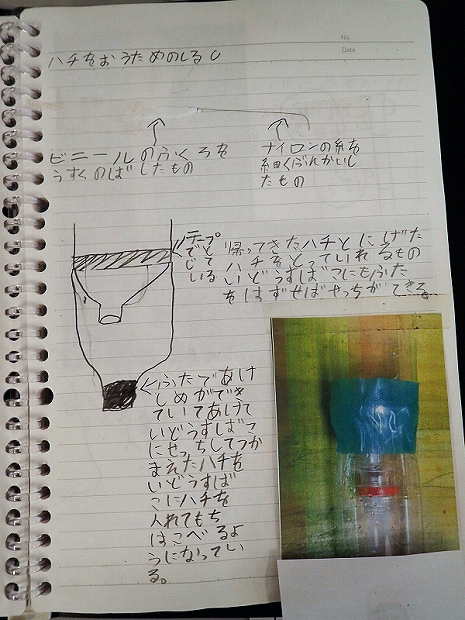 No.
Date
ハチをおうためのしるし
ビニールのふくろを
うすくのばしたもの
ナイロンの糸を
細くぶんかいし
たもの
テープ
でと
じて
いる
帰ってきたハチとにげた
ハチをとっていれるもの
いどうすばこにもふた
をはずせばせっちができる。
ふたであけ
しめができ
ていてあけて
いどうすばこ
にせっちしてつか
まえたハチを
いどうすば
こにハチを
入れてもち
はこべるよ
うになってい
る。